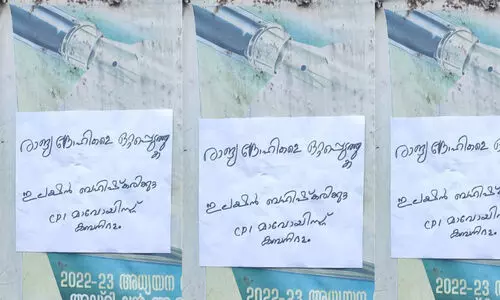 രാജ്യ ദ്രോഹികളെ ഒറ്റപ്പെടുത്തുക
ഇലക്ഷൻ ബഹിഷ്കരിക്കുക
CPI മാവോയിസ്റ്റ്
കബനിദളം
2022-23 അധ്യയന
രാജ്യ ദ്രോഹികളെ ഒറ്റപ്പെടുത്തുക
ഇലക്ഷൻ ബഹിഷ്കരിക്കുക
CPI മാവോയിസ്റ്റ്
കബനിദളം
2022-23 അധ്യയന
രാജ്യ ദ്രോഹികളെ
ഇലക്ഷൻ ബഹിഷ്കരിക്കുക
CPI മാവോയിസ്റ്റ്
കബനിദളം
2022-23